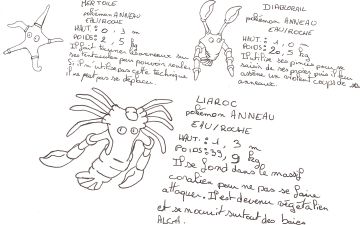 MERTOILE
pokémon ANNEAU
EAU/ROCHE
HAUT.: 0, 3 m
POIDS: 2, 5 kg
Il fait tourner les anneaux sur
ses tentacules pour pouvoir
S'il n'utilise pas cette technique
il ne peut pas se déplacer.
DIABLORAIL
pokémon ANNEAU
EAU/ROCHE
HAUT.: 1, 0 m
POIDS: 20, 5 kg
Il utilise ses pinces pour se
saisir de ses proies puis il leur
assène un violent coups de ses
anneaux.
LIAROC
pokémon ANNEAU
EAU/ROCHE
HAUT.: 1, 3 m
POIDS: 39, 9 kg
Il se fond dans le massif
coralien pour ne pas se faire
attaquer. Il est devenu végétalien
et se nourrit surtout des baies
ALGA.